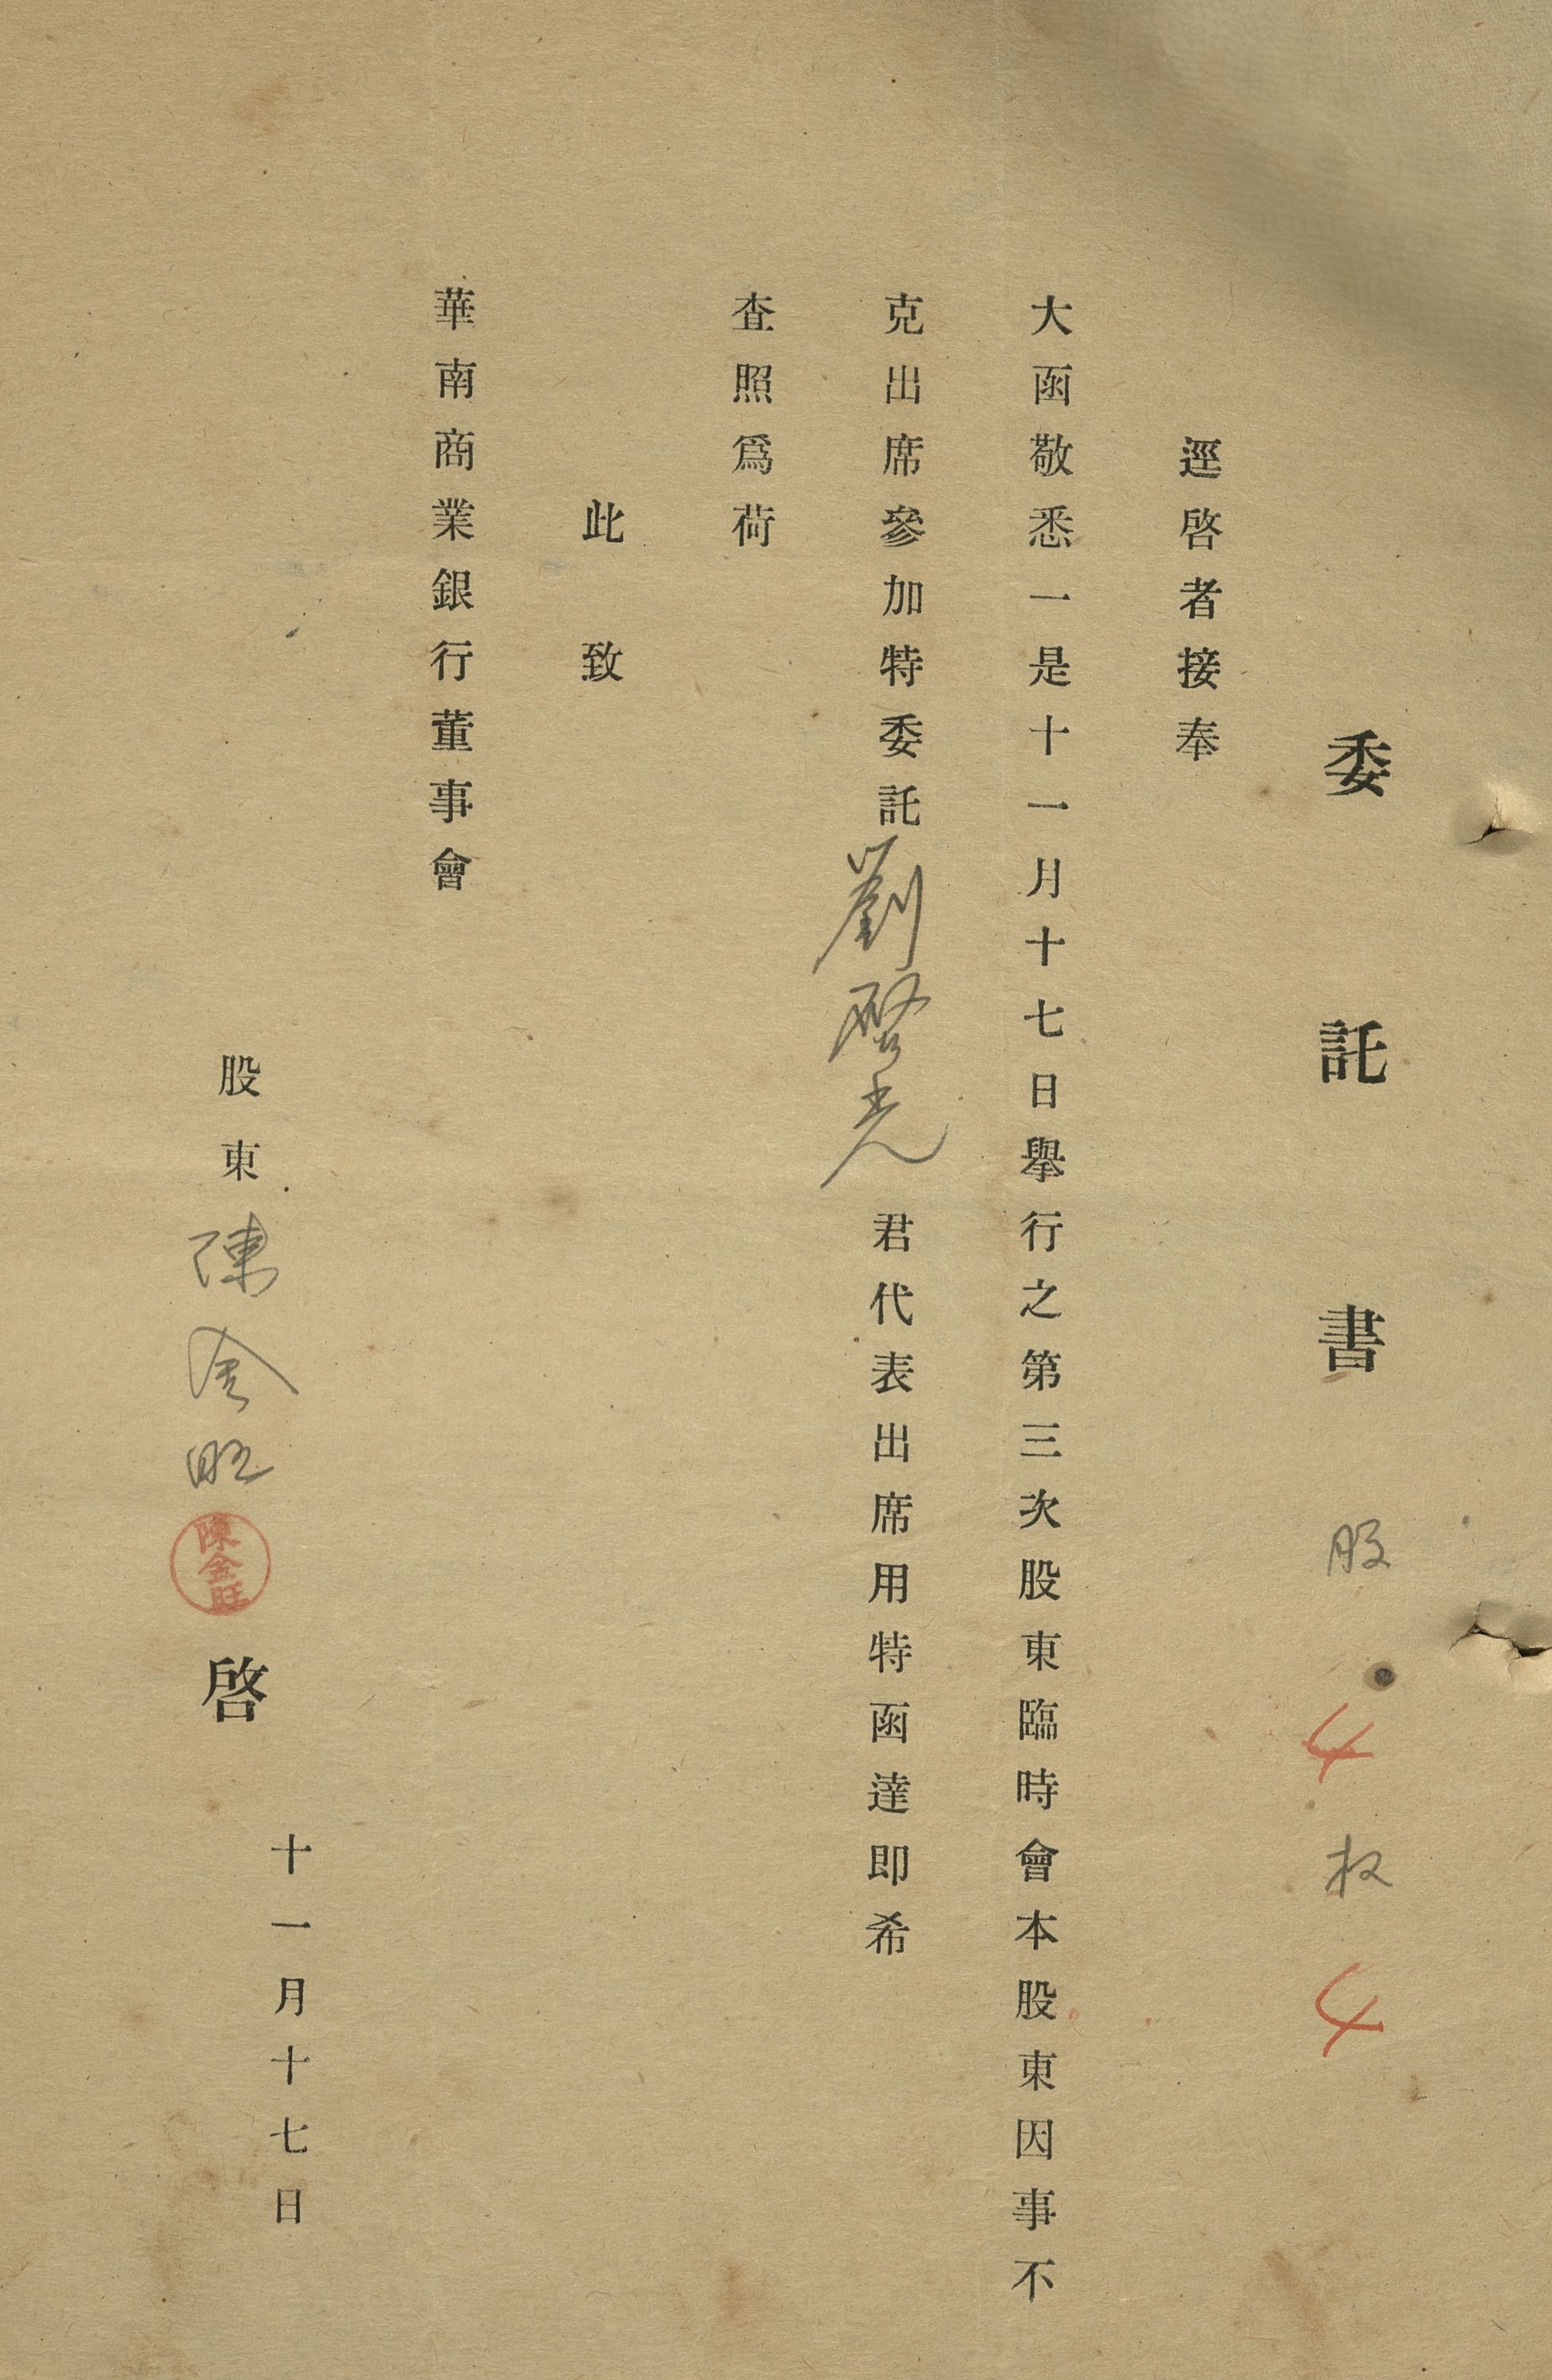 委託書 股 4 权 4
逕啓者接奉
大函敬悉一是十一月十七日舉行之第三次股東臨時會本股東因事不
克出席參加特委託劉啓光君代表出席用特函達即希
査照爲荷
此致
華南商業銀行董事會
十一月十七日
股東陳金旺啓
陳金旺